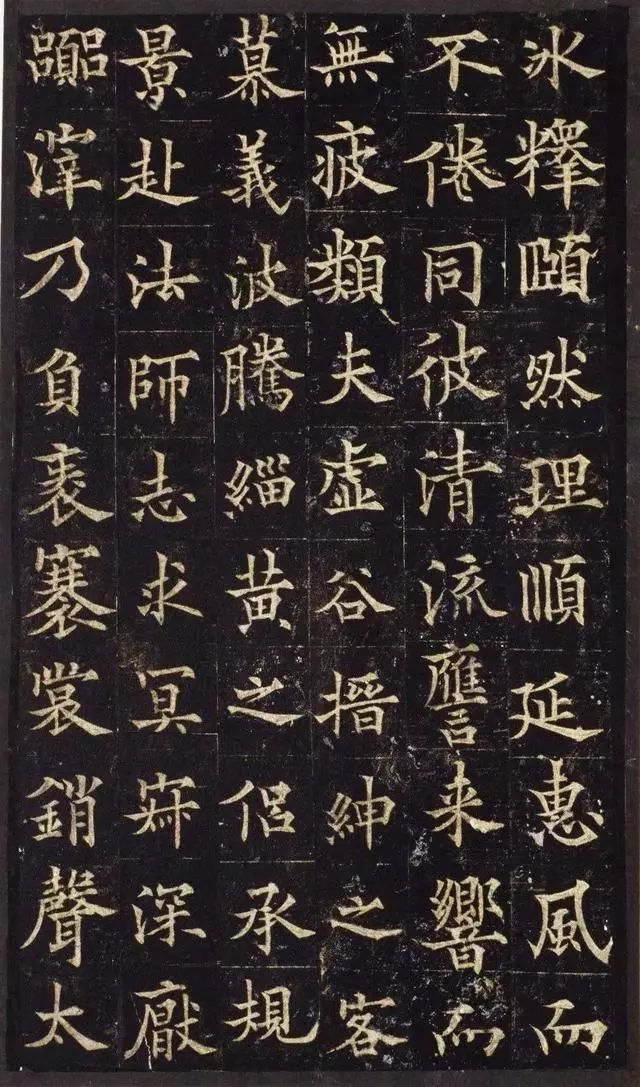 冰釋頤然理順延惠風而
不倦同彼清流譍来響而
無疲類夫虚谷搢紳之客
慕義波騰緇黄之侶承規
景赴法師志求冥寂深厭
囂滓乃負袠褰裳銷聲太